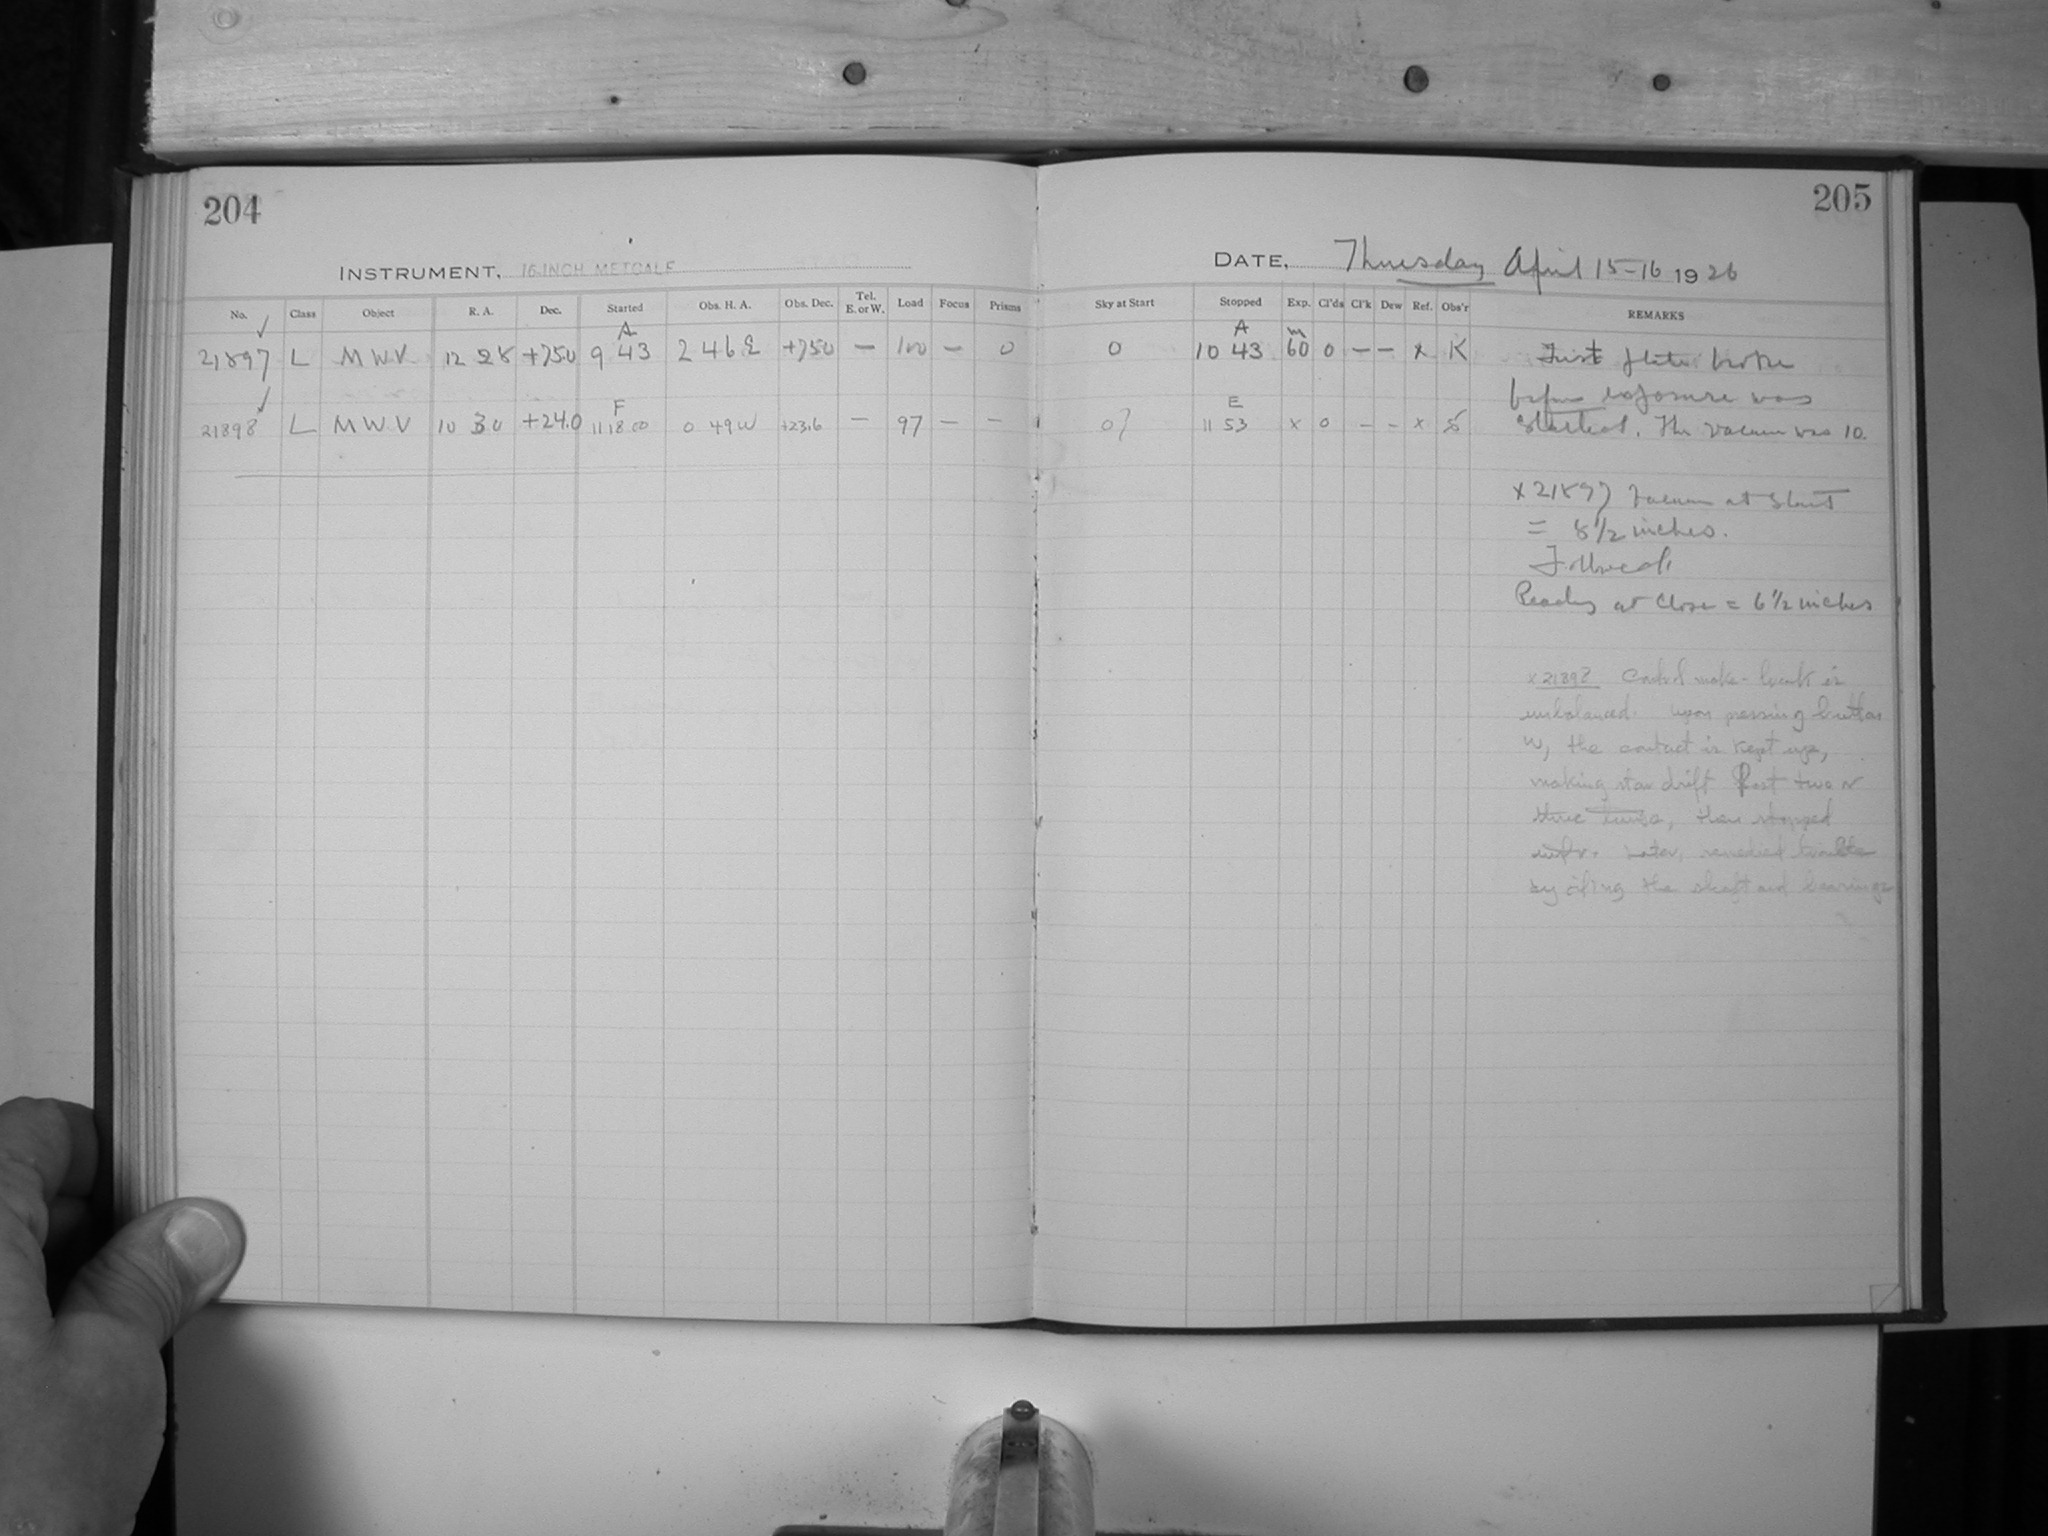 204
205
INSTRUMENT, 16-INCH METCALF
DATE, Thursday April 15-16 1926
No. Class Object R. A. Dec. Started Obs. H. A. Obs. Dec. Tel. E. or W. Load Focus Prisms Sky at Start Stopped Exp. Cl'ds Cl'k Dew Ref. Obs'r REMARKS
A A m
21897 L M W V 12 28 +75.0 9 43 2 46 E +75.0 — 100 — 0 0 10 43 60 0 — — x K First plate broke
before exposure was
F E
21898 L M W V 10 30 +24.0 11 18 00 0 49 W +23.6 — 97 — — 0? 11 53 x 0 — — x started. The vacuum was 10.
x 21897 Vacuum at start
= 8 1/2 inches.
Followed
Reading at close = 6 1/2 inches
x 21898 Control make-break is
unbalanced. Upon pressing button
W, the contact is kept up,
making star drift past two or
three, then stopped
Later, remedied trouble
by oiling the shaft and bearings